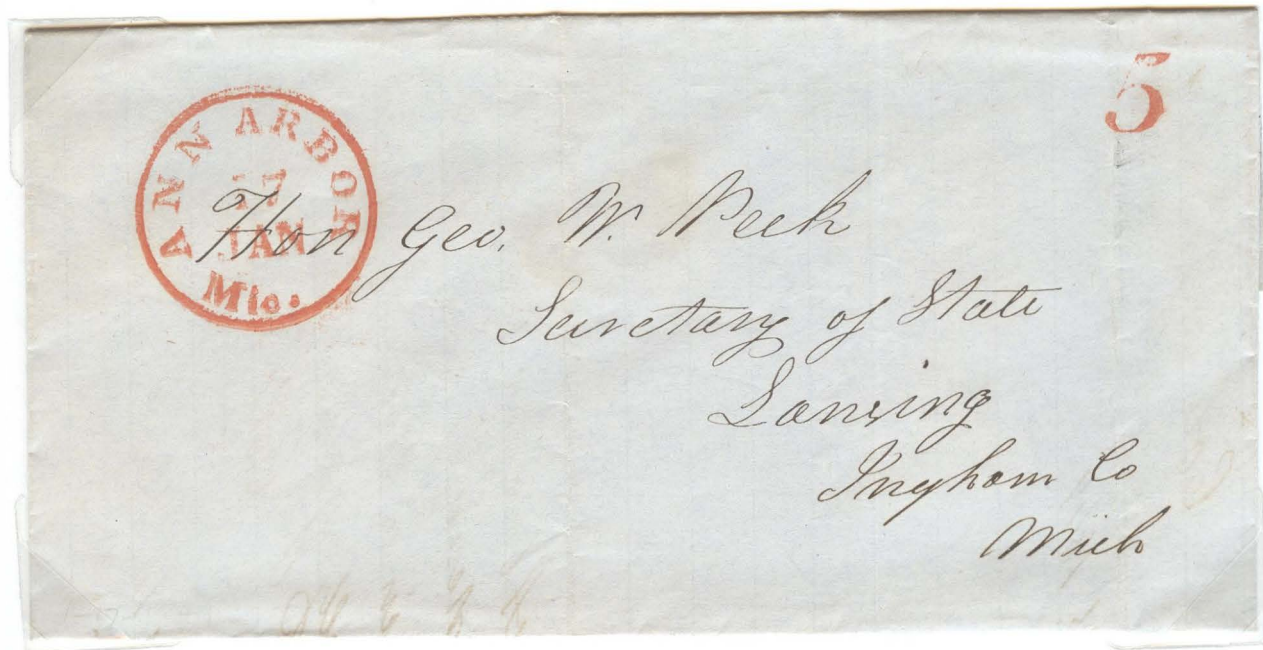 5
ANN ARBOR
17
JAN
Mic.
Hon Geo. W. Peck
Secretary of State
Lansing
Ingham Co
Mich